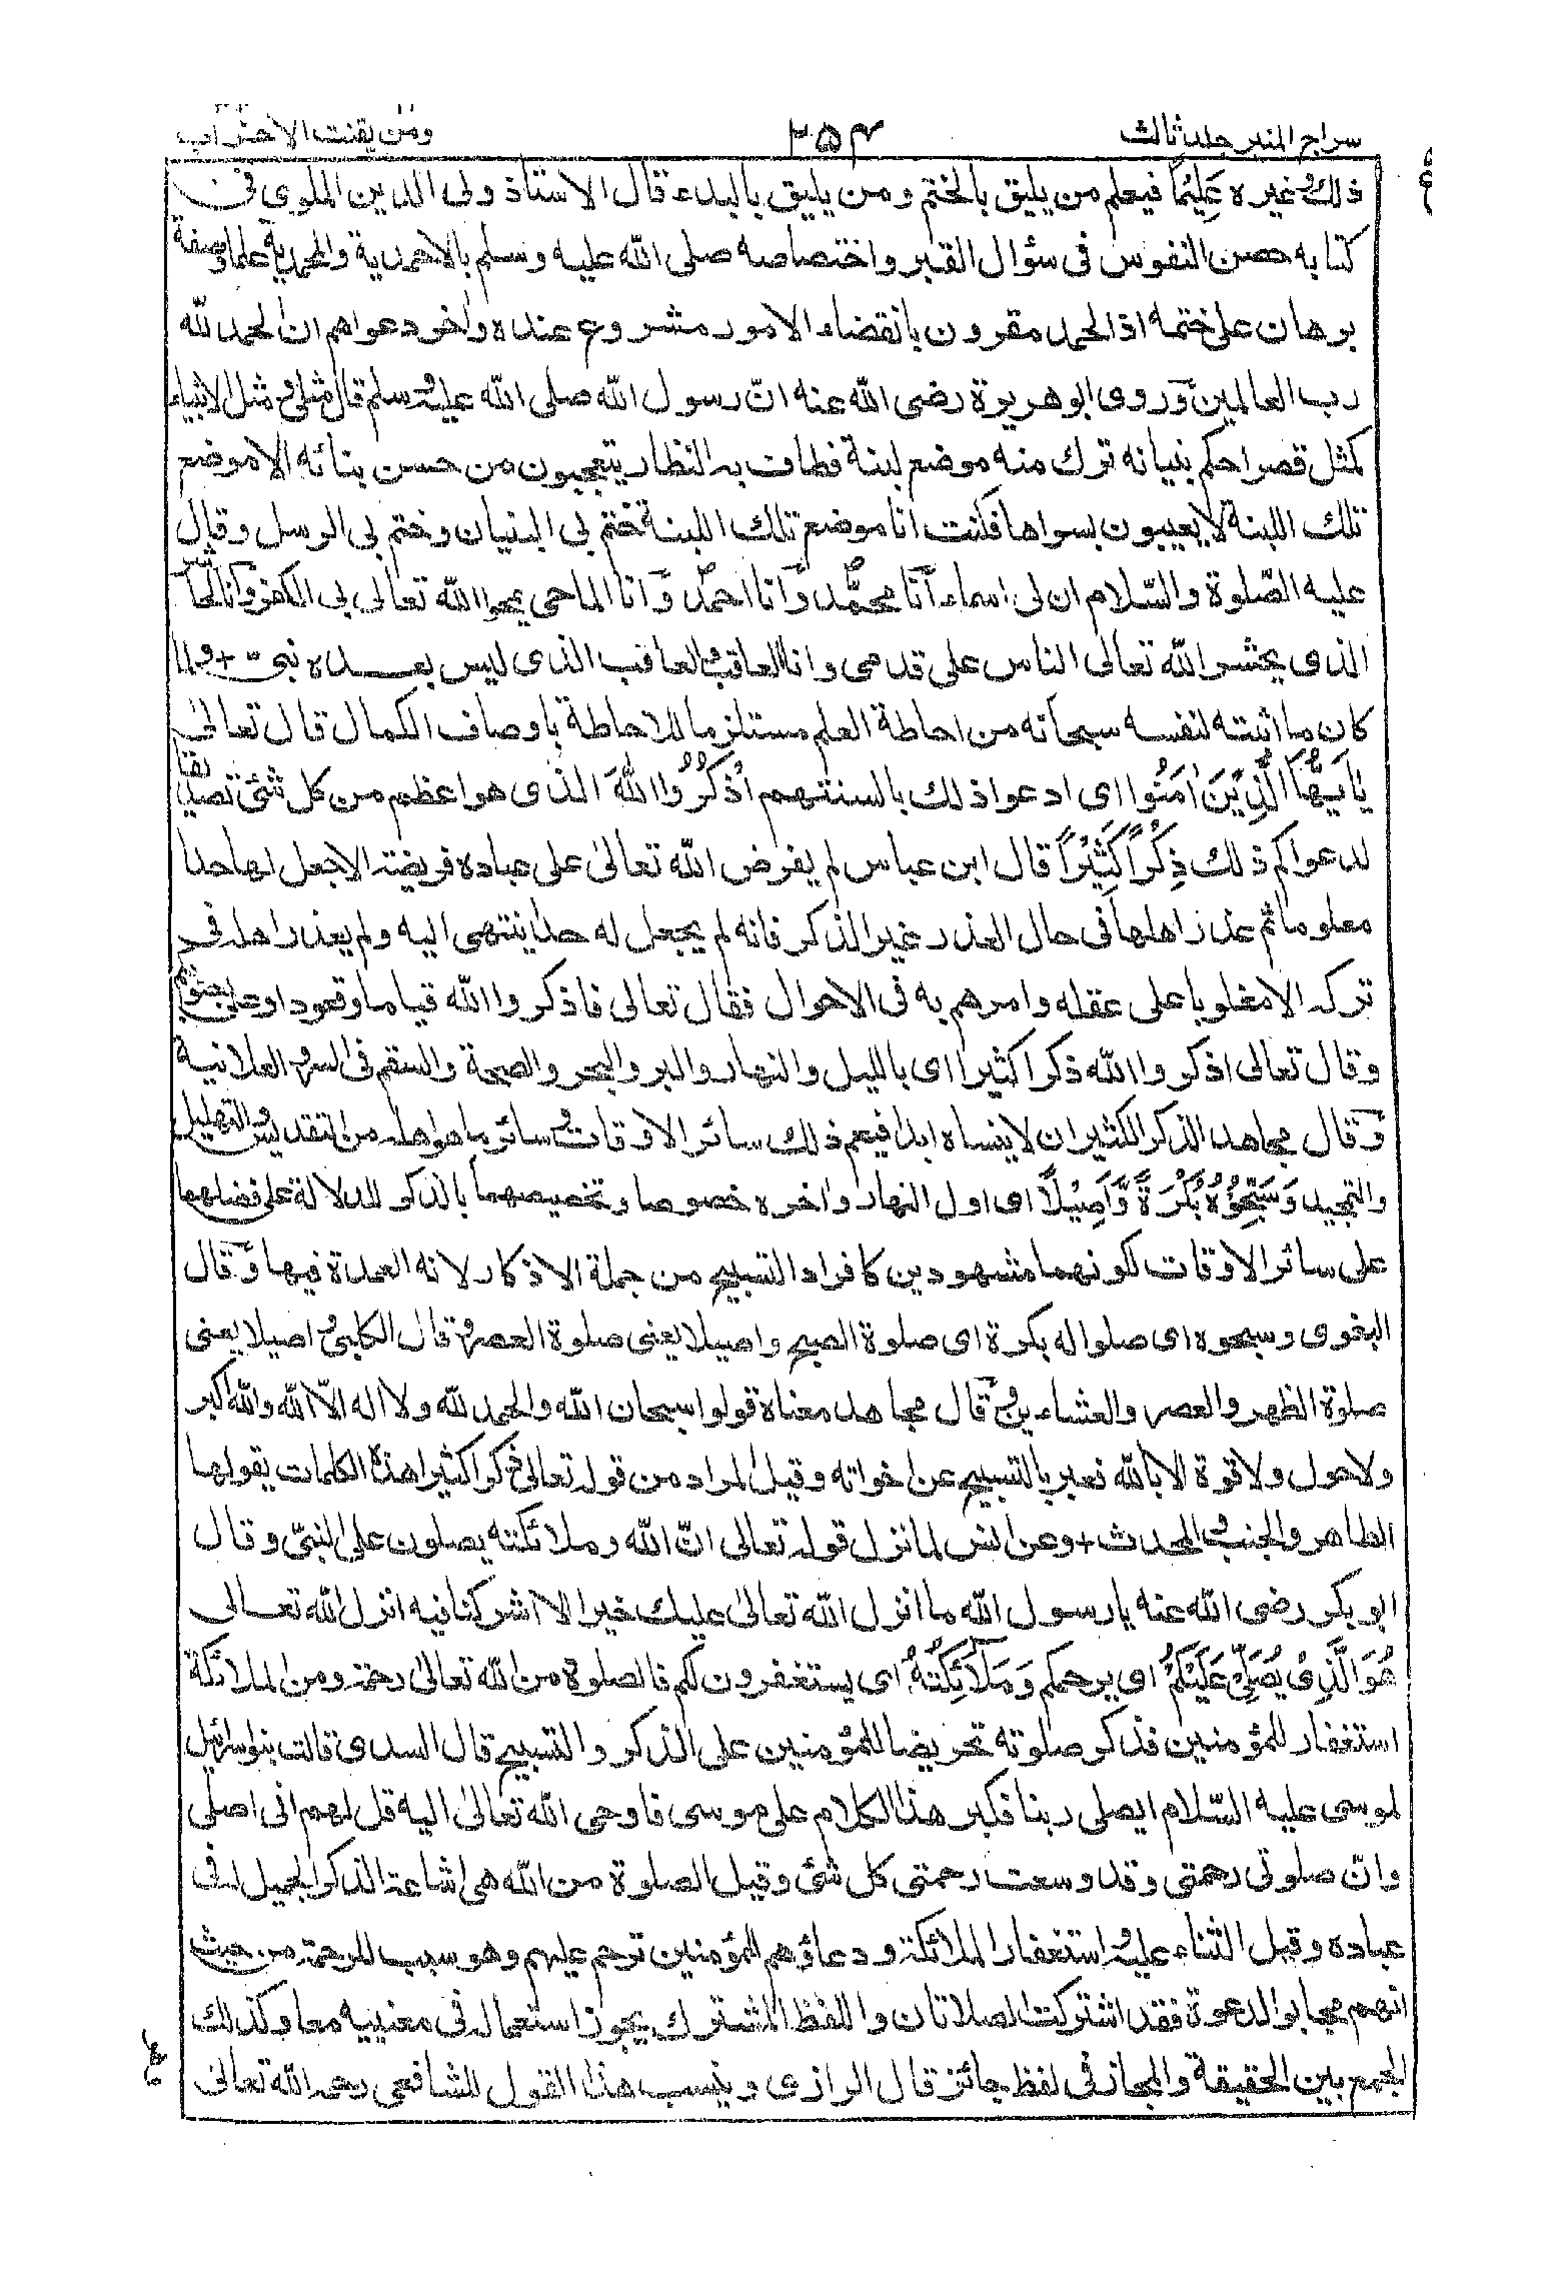 سراج المنير جلد ثالث
٢٥٤
ومن يقنت الاحزاب
ذلك وغيره عَلِيْمًا فيعلم من يليق بالختم ومن يليق بالبدء قال الاستاذ ولى الدين الملوى فى
كتابه حصن النفوس فى سؤال القبر واختصاصه صلى الله عليه وسلم بالاحمدية والمحمدية علما وصفة
برهان على ختمه اذ الحمد مقرون بانقضاء الامور مشروع عنده واٰخر دعواهم ان الحمد لله
رب العالمين وَروى ابو هريرة رضى الله عنه انّ رسول الله صلى الله عليه وسلم قال مثلى ومثل الانبياء
كمثل قصر احكم بنيانه ترك منه موضع لبنة فطاف به النظار يتعجبون من حسن بنائه الا موضع
تلك اللبنة لا يعيبون بسواها فكنت انا موضع تلك اللبنة ختم بى البنيان وختم بى الرسل وقال
عليه الصّلوة والسّلام ان لى اسماء اَنا محمّد وَانا احمد وَانا الماحى يمحوا الله تعالى بى الكفر وَانا الحاشر
الذى يحشر الله تعالى الناس على قدمى وانا العاقب والعاقب الذى ليس بعده نبىّ + ولما
كان ما اثبته لنفسه سبحانه من احاطة العلم مستلزما للاحاطة باوصاف الكمال قال تعالىٰ
يٰاَيُّهَا الَّذِيْنَ اٰمَنُوا اى ادعوا ذلك بالسنتهم اذْكُرُوا اللهَ الذى هو اعظم من كل شئ تصديقا
لدعواكم ذلك ذِكْرًا كَثِيْرًا قال ابن عباس لم يفرض الله تعالىٰ على عباده فريضة الا جعل لها حدا
معلوما ثم عذر اهلها فى حال العذر غير الذكر فانه لم يجعل له حدا ينتهى اليه ولم يعذر اهله فى
تركه الا مغلوبا على عقله وامرهم به فى الاحوال فقال تعالى فاذكروا الله قياما وقعودا وعلى جنوبكم
وقال تعالى اذكروا الله ذكرا كثيرا اى بالليل والنهار والبر والبحر والصحة والسقم فى السر والعلانية
وَقال مجاهد الذكر الكثير ان لا ينساه ابدا فيعم ذلك سائر الاوقات وسائر ما هو اهله من التقديس والتهليل
والتمجيد وَسَبِّحُوْهُ بُكْرَةً وَّاَصِيْلًا اى اول النهار واٰخره خصوصا وتخصيصهما بالذكر للدلالة على فضلهما
على سائر الاوقات لكونهما مشهودين كافراد التسبيح من جملة الاذكار لانه العمدة فيها وَقال
البغوى وسبحوه اى صلوا له بكرة اى صلوة الصبح واصيلا يعنى صلوة العصر وقال الكلبى واصيلا يعنى
صلوة الظهر والعصر والعشاءين وَقال مجاهد معناه قولوا سبحان الله والحمد لله ولا اله الّا الله والله اكبر
ولا حول ولا قوة الا بالله فعبر بالتسبيح عن اخواته وقيل المراد من قوله تعالى ذكرا كثيرا هذه الكلمات يقولها
الطاهر والجنب والمحدث + وعن انس لما نزل قوله تعالى انّ الله وملائكته يصلون على النبىّ وقال
ابو بكر رضى الله عنه يا رسول الله ما انزل الله تعالىٰ عليك خيرا الا اشركنا فيه انزل الله تعالى
هُوَ الَّذِىْ يُصَلِّىْ عَلَيْكُمْ اى يرحمكم وَمَلَٓائِكَتُهُ اى يستغفرون لكم فالصلوة من الله تعالىٰ رحمة ومن الملائكة
استغفار للمؤمنين فذكر صلوته تحريضا للمؤمنين على الذكر والتسبيح قال السدى قالت بنو اسرائيل
لموسى عليه السّلام ايصلى ربنا فكبر هذا الكلام على موسى فاوحى الله تعالىٰ اليه قل لهم انى اصلى
وانّ صلوتى رحمتى وقد وسعت رحمتى كل شئ وقيل الصلوة من الله هى اشاعة الذكر الجميل له فى
عباده وقيل الثناء عليه واستغفار الملائكة ودعاؤهم للمؤمنين ترحم عليهم وهو سبب للرحمة من حيث
انهم مجابوا الدعوة فقد اشتركت الصلاتان واللفظ المشترك يجوز استعماله فى معنييه معا وكذلك
الجمع بين الحقيقة والمجاز فى لفظ جائز قال الرازى وينسب هذا القول للشافعى رحمه الله تعالىٰ